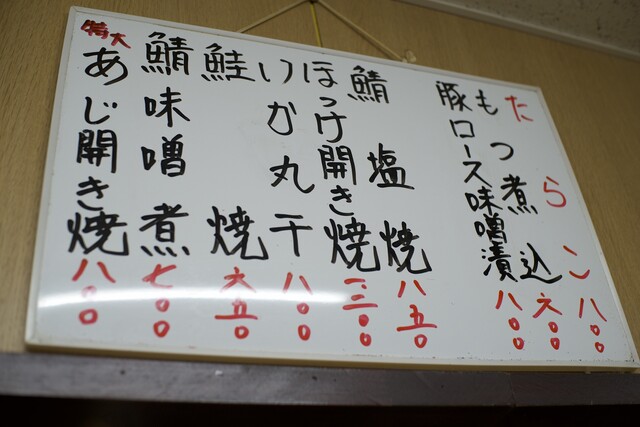 たらこ 八〇〇
もつ煮込 六〇〇
豚ロース味噌漬 八〇〇
鯖塩焼 八五〇
ほっけ開き焼 一三〇〇
いか丸干 八〇〇
鮭焼 六五〇
鯖味噌煮 七〇〇
特大あじ開き焼 八〇〇